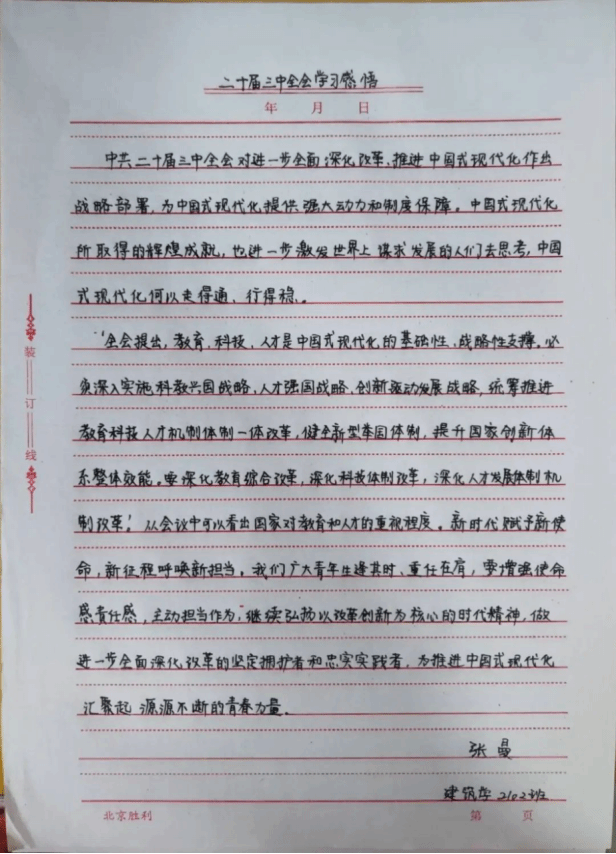 二十届三中全会学习感悟
年 月 日
中共二十届三中全会对进一步全面深化改革、推进中国式现代化作出
战略部署,为中国式现代化提供强大动力和制度保障。中国式现代化
所取得的辉煌成就,也进一步激发世界上谋求发展的人们去思考,中国
式现代化何以走得通、行得稳。
“全会提出,教育、科技、人才是中国式现代化的基础性、战略性支撑。必
须深入实施科教兴国战略、人才强国战略、创新驱动发展战略,统筹推进
教育科技人才机制体制一体改革,健全新型举国体制,提升国家创新体
系整体效能。要深化教育综合改革,深化科技体制改革,深化人才发展体制机
制改革”从会议中可以看出国家对教育和人才的重视程度。新时代赋予新使
命,新征程呼唤新担当。我们广大青年生逢其时、重任在肩,要增强使命
感责任感,主动担当作为,继续弘扬以改革创新为核心的时代精神,做
进一步全面深化改革的坚定拥护者和忠实实践者,为推进中国式现代化
汇聚起源源不断的青春力量.
张曼
建筑学2102班
装订线
北京胜利 第 页